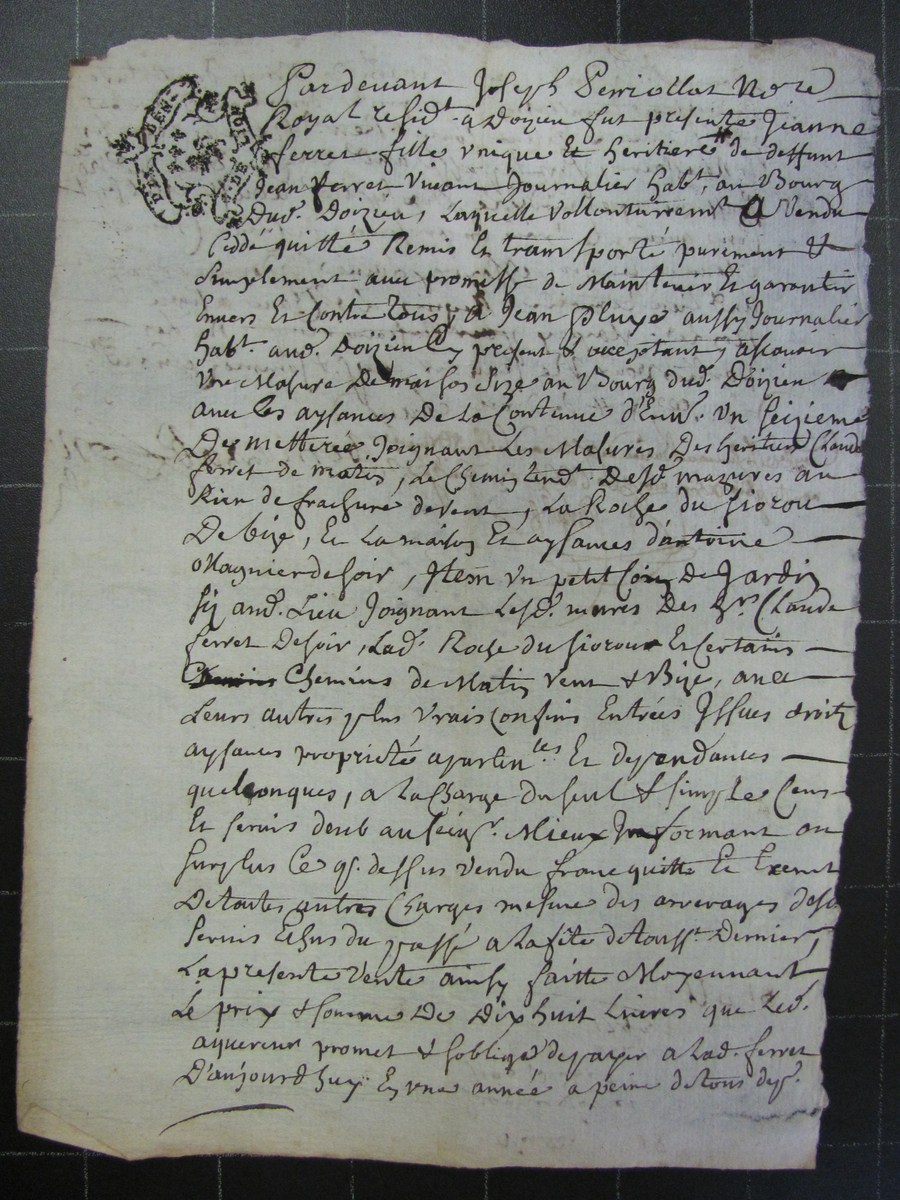 Pardevant Joseph Perriollat No.re
Royal resid.t a Doizieu fut presente Jeanne
ferret fille Unique Et heritiere de deffunt
Jean ferret Vivant Journalier hab.t au Bourg
Dud. Doizieu, Laquelle Vollontairem.t a Vendu
Ceddé quitté Remis Et transporté purement &
Simplement avec promesse de Maintenir Et garantir
Envers Et Contre Tous, a Jean pluye aussy Journalier
hab.t aud. Doizieu Cy present & acceptant, ascavoir
Une Masure De maison Size au Bourg dud. Doizieu
avec les aysances De La Contenue d'Env. Un seizieme
De metteree Joignant Les Masures Des heritiers Claude
ferret de matin, Le Chemin tend.t Desd. mazures au
de vent, La Roche du
De bize, Et La maison Et aysances d'antoine
Magnier de soir, Item Un petit Coin De Jardin
Sis aud. Lieu Joignant Lesd. mures Des h.rs Claude
ferret De soir, Lad. Roche du Et Certains
Chemins de Matin Vent & Bize, avec
Leurs autres plus Vrais Confins Entrées Issues droits
aysances proprieté apartin.ces Et dependances
quelconques, a La Charge du seul & simple Cens
Et servis deub au seig.r Mieux Informant au
surplus Ce q. dessus Vendu franc quitte Et Exempt
De toutes autres Charges mesme des arrerages desd.
servis Echus du passé a La fete de Touss.t Dernier,
La presente Vente ainsy faitte Moyennant
Le prix & somme De Dix huit Livres que Led.
aquereur promet & s'oblige de payer a Lad. ferret
D'aujourd'huy En une année a peine de tous dep.